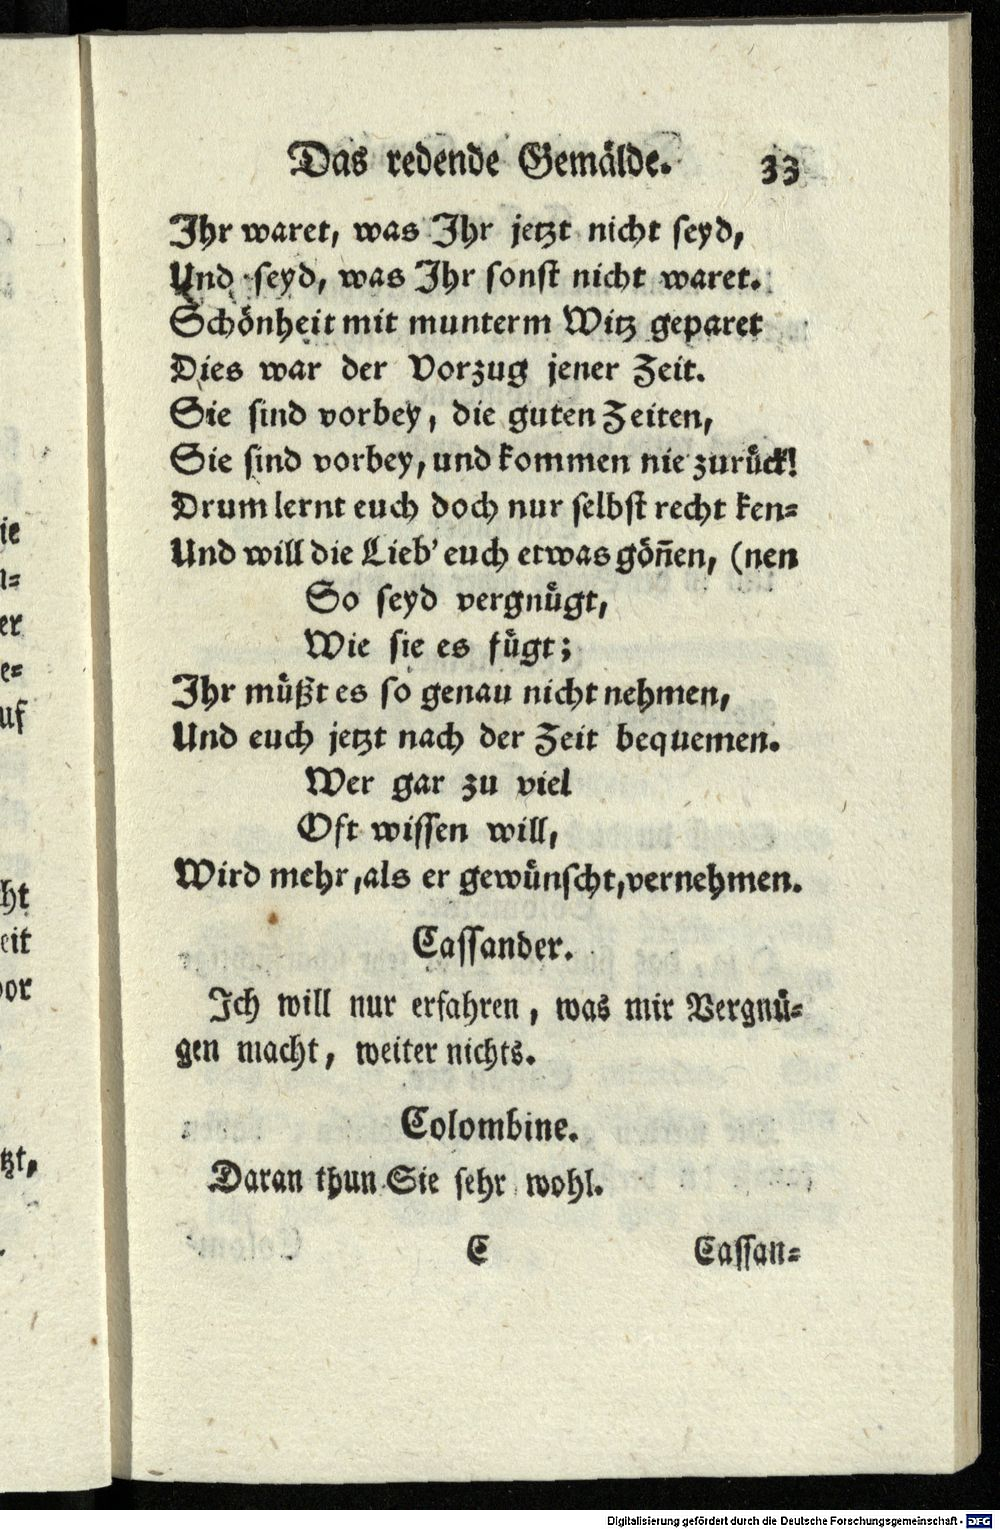 Das redende Gemälde. 33
Ihr waret, was Ihr jetzt nicht seyd,
Und seyd, was Ihr sonst nicht waret.
Schönheit mit munterm Witz geparet
Dies war der Vorzug jener Zeit.
Sie sind vorbey, die guten Zeiten,
Sie sind vorbey, und kommen nie zurück!
Drum lernt euch doch nur selbst recht ken-
Und will die Lieb' euch etwas gön̄en, (nen
So seyd vergnügt,
Wie sie es fügt;
Ihr müßt es so genau nicht nehmen,
Und euch jetzt nach der Zeit bequemen.
Wer gar zu viel
Oft wissen will,
Wird mehr, als er gewünscht, vernehmen.
Cassander.
Ich will nur erfahren, was mir Vergnü-
gen macht, weiter nichts.
Colombine.
Daran thun Sie sehr wohl.
C Cassan-
Digitalisierung gefördert durch die Deutsche Forschungsgemeinschaft - DFG